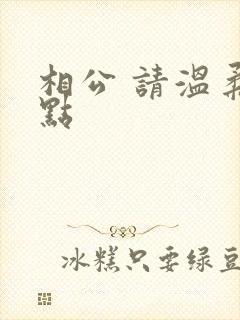 相公 請溫柔
點
冰糕只要绿豆